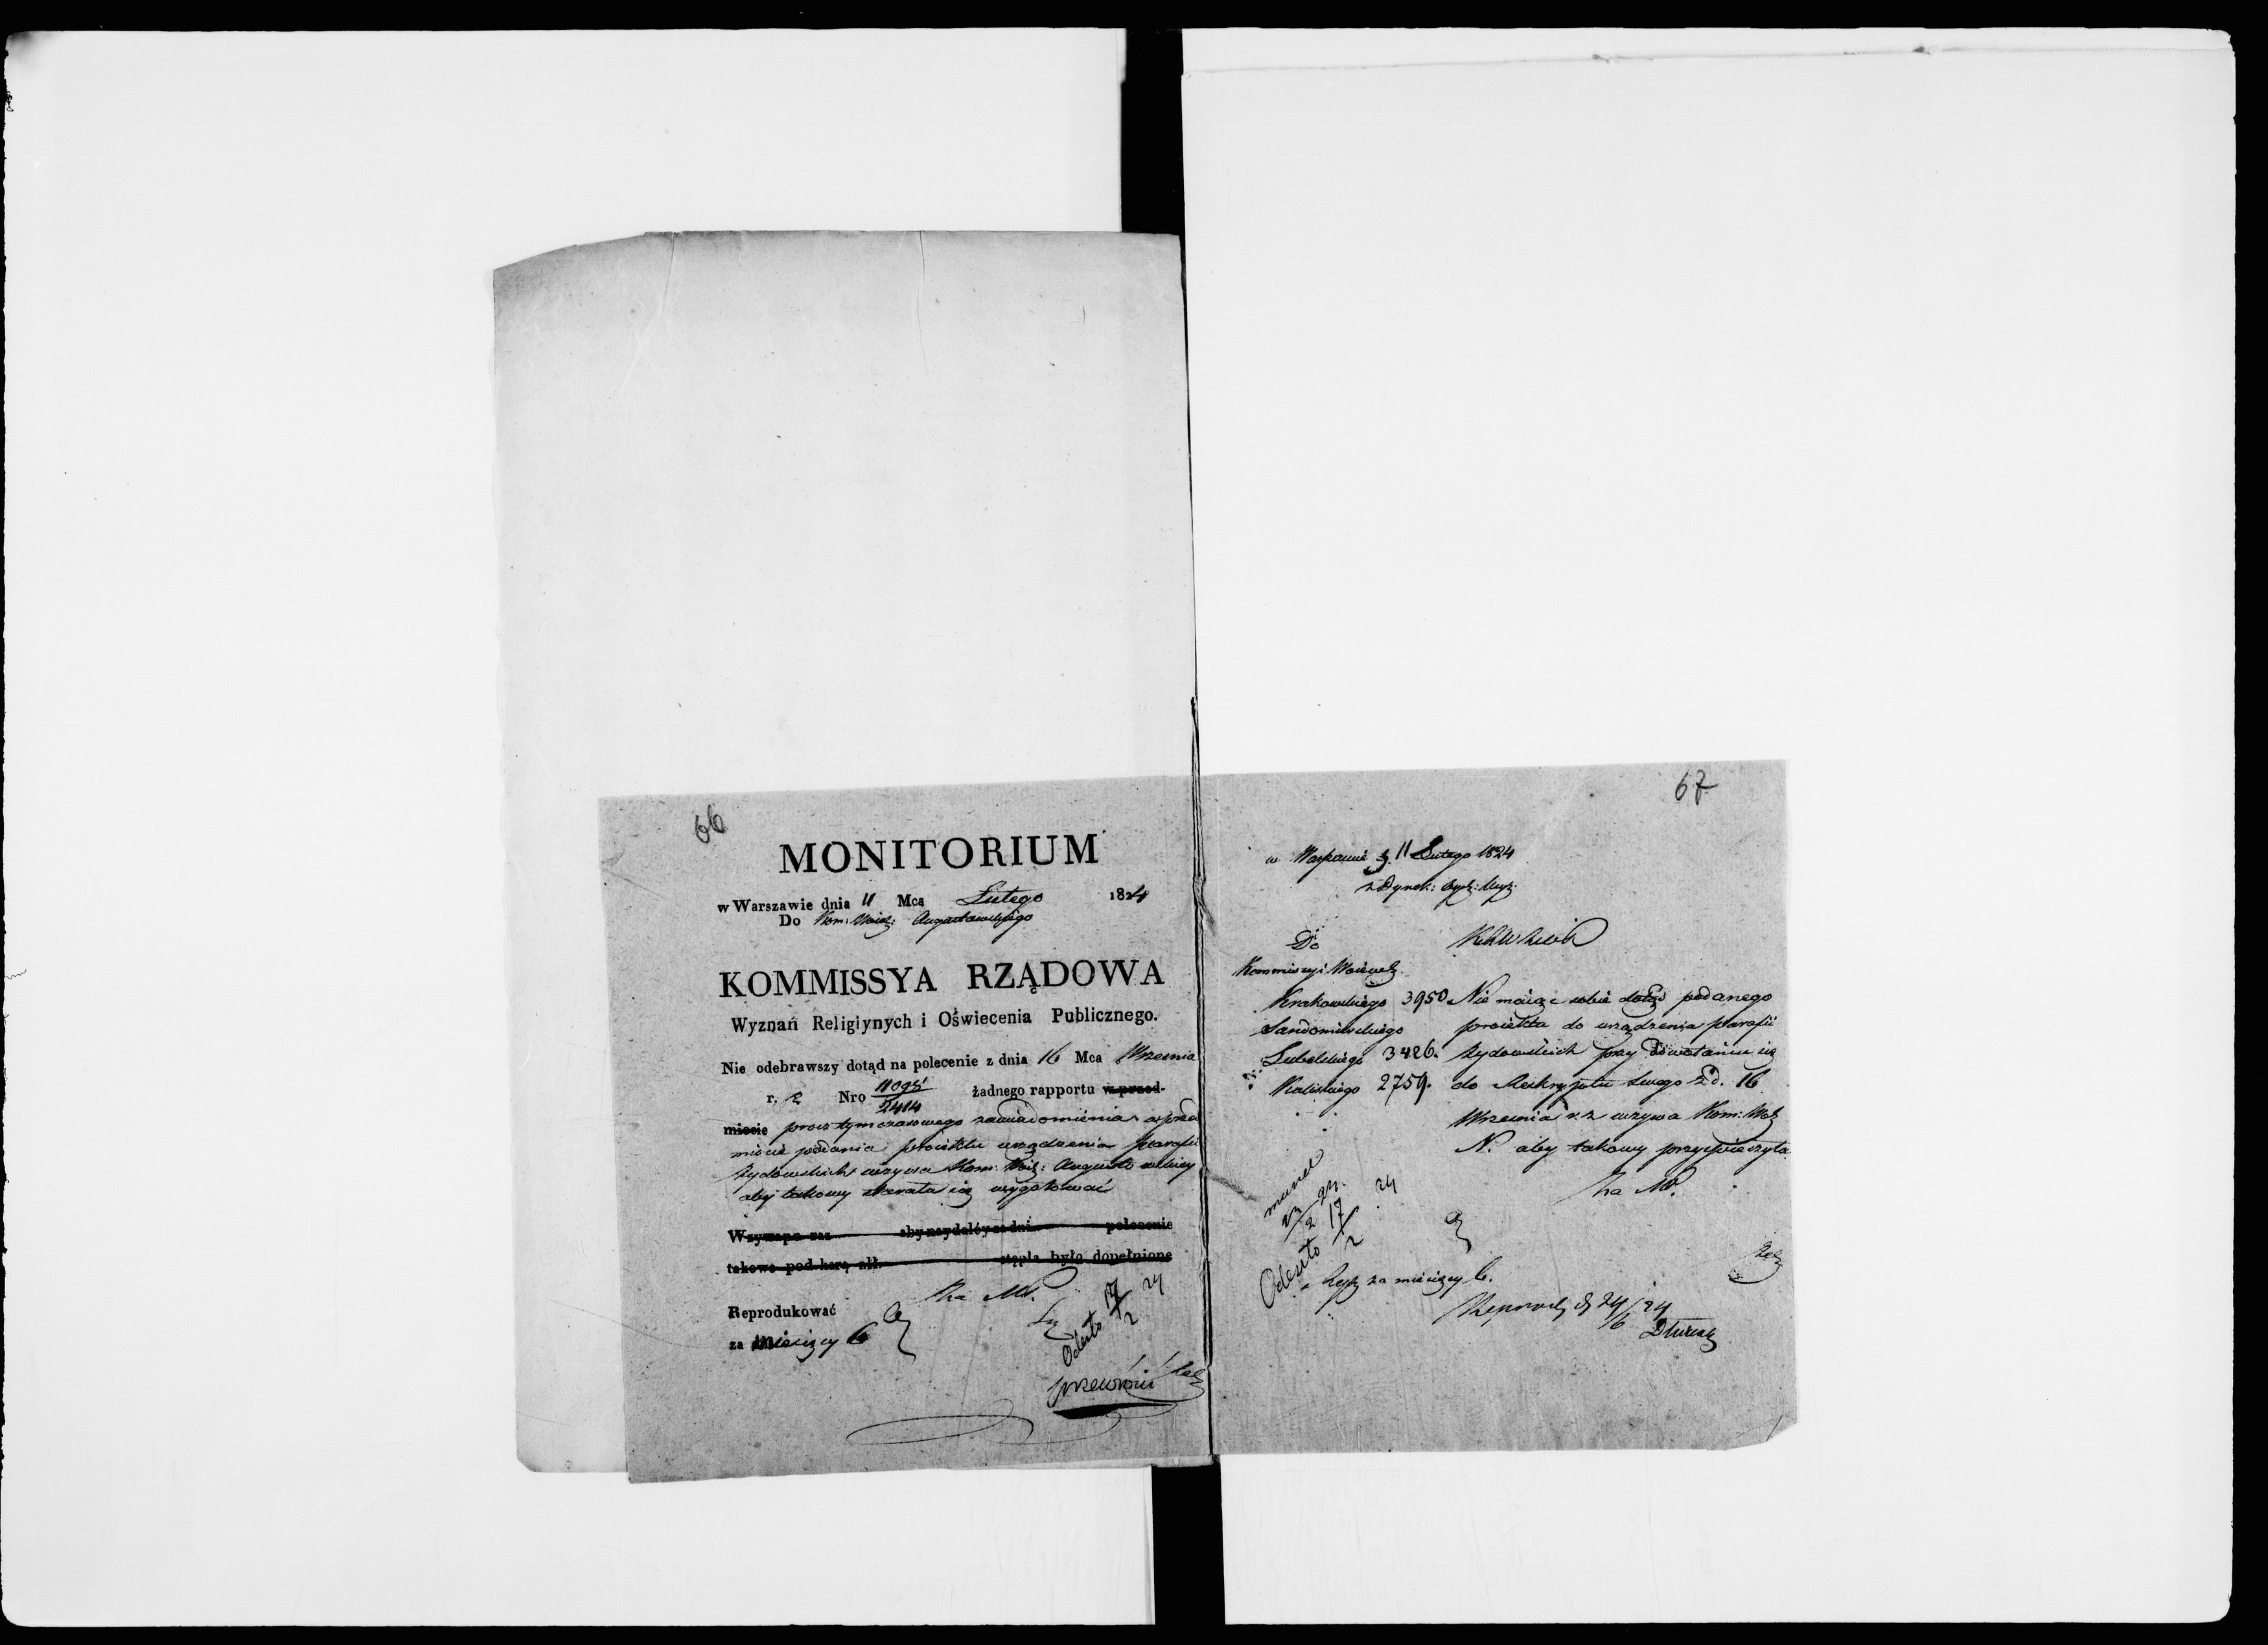 66
MONITORIUM
w Warszawie dnia 11 Mca Lutego 1824
Do Kom: Woiew: Augustowskiego
KOMMISSYA RZĄDOWA
Wyznań Religiynych i Oświecenia Publicznego.
Nie odebrawszy dotąd na polecenie z dnia 16 Mca Września
r. z Nro 11098/2414 żadnego rapportu w przed-
miocie procz tymczasowego zawiadomienia w przed
miocie podania proiektu urządzenia parafii
żydowskich wzywa Kom: Woie: Augustowskiey
aby takowy starała się wygotować
Wzywapo raz aby naydaléy za dni polecenie
takowe pod karą złł. stępla było dopełnione
za MP.
Reprodukować
za miesięcy 6
Odeszło 17/2 24
67
w Warszawie d. 11 Lutego 1824
Do
Kommissyi Woiewdz.
Krakowskiego 3950
Sandomirskiego
Lubelskiego 3426.
Kaliskiego 2759.
Nie maiąc sobie dotąd podanego
proiektu do urządzenia parafii
żydowskich przy odwołaniu się
do Reskryptu swego z d. 16
Września r. z wzywa Kom: Wdz
N. aby takowy przyspieszyła.
za MP.
Odeszło 17/2 24
za miesięcy 6.
Reprod. d 24/6 24